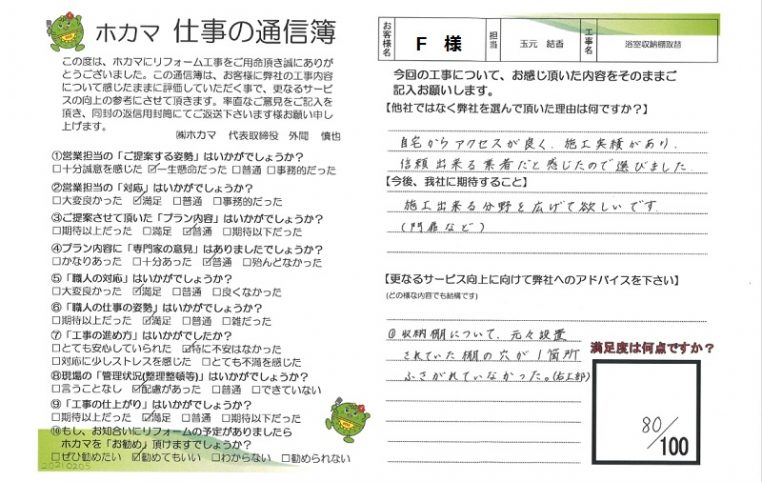 ホカマ 仕事の通信簿
この度は、ホカマにリフォーム工事をご用命頂き誠にありが
とうございました。この通信簿は、お客様に弊社の工事内容
について感じたままに評価していただく事で、更なるサービ
スの向上の参考にさせて頂きます。率直なご意見をご記入を
頂き、同封の返信用封筒にてご返送下さいます様お願い申し
上げます。
㈱ホカマ 代表取締役 外間 慎也
①営業担当の「ご提案する姿勢」はいかがでしょうか?
□十分誠意を感じた ☑一生懸命だった □普通 □事務的だった
②営業担当の「対応」はいかがでしょうか?
□大変良かった ☑満足 □普通 □事務的だった
③ご提案させて頂いた「プラン内容」はいかがでしょうか?
□期待以上だった □満足 ☑普通 □期待以下だった
④プラン内容に「専門家の意見」はありましたでしょうか?
□かなりあった □十分あった ☑普通 □殆んどなかった
⑤「職人の対応」はいかがでしょうか?
□大変良かった ☑満足 □普通 □良くなかった
⑥「職人の仕事の姿勢」はいかがでしょうか?
□期待以上だった ☑満足 □普通 □雑だった
⑦「工事の進め方」はいかがでしたか?
□とても安心していられた ☑特に不安はなかった
□対応に少しストレスを感じた □とても不満を感じた
⑧現場の「管理状況(整理整頓等)」はいかがでしょうか?
□言うことなし ☑配慮があった □普通 □できていない
⑨「工事の仕上がり」はいかがでしょうか?
□期待以上だった ☑満足 □普通 □期待以下だった
⑩もし、お知合いにリフォームの予定がありましたら
ホカマを「お勧め」頂けますでしょうか?
□ぜひ勧めたい ☑勧めてもいい □わからない □勧められない
20210205
お客様名 F 様 担当 玉元 結香 工事名 浴室収納棚取替
今回の工事について、お感じ頂いた内容をそのままご
記入お願いします。
【他社ではなく弊社を選んで頂いた理由は何ですか?】
自宅からアクセスが良く、施工実績があり、
信頼出来る業者だと感じたので選びました
【今後、我社に期待すること】
施工出来る分野を広げて欲しいです
(門扉など)
【更なるサービス向上に向けて弊社へのアドバイスを下さい】
(どの様な内容でも結構です)
◎収納棚について、元々設置
されていた棚の穴が1箇所
ふさがれていなかった。(右上部)
満足度は何点ですか?
80/100